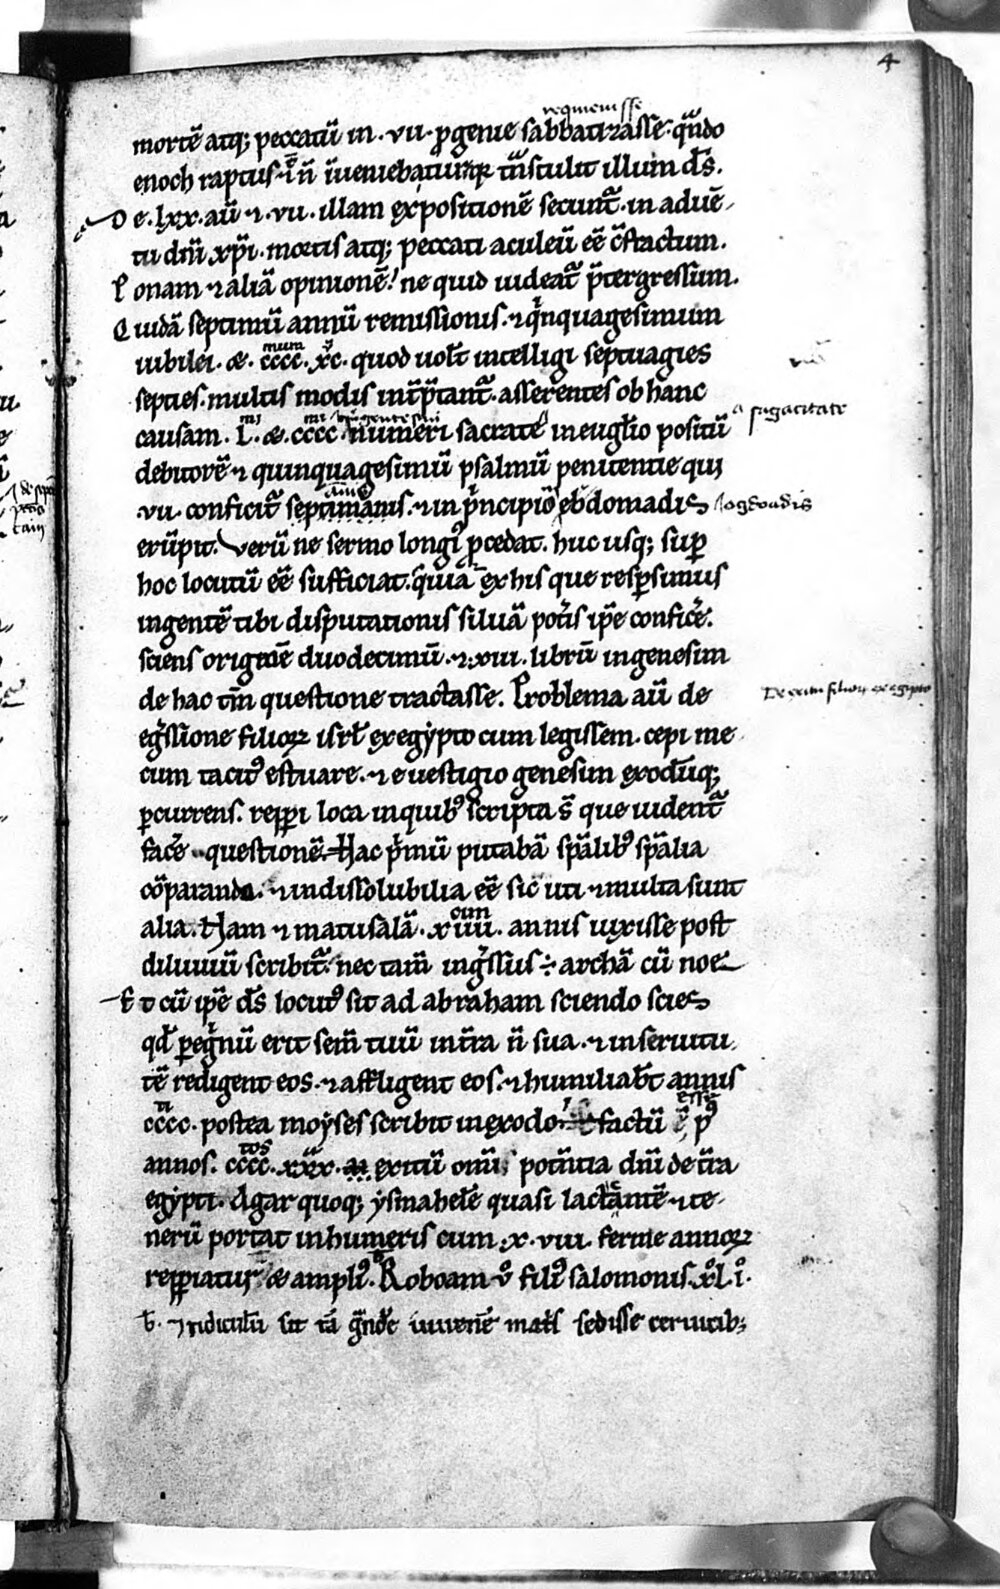 4
requieuisse
mortē atq; peccatū in · vii · ꝓgenie sabbatizasse · qn̄do
enoch raptus · ⁊ n̄ īueniebatur quia tn̄stulit illum d̄s.
De · lxx · aū ⁊ · vii · illam expositionē secunt̄ · in aduē-
tu dn̄i xp̄i · mortis atq; peccati aculeū eē ↄ̄fractum.
Ponam ⁊ aliā opinionē! ne quid uideat̄ p̄tergressum.
Quidā septimū annū remissionis · ⁊ qͥnquagesimum
iubilei · & · cccc · xc · quod uol̄t intelligi septuagies
septies · multis modis int̄p̄tant̄ · asserentes ob hanc
causam · L · & · cccc · numeri sacratē in eugl̄io positū
sagacitate
debitorē ⁊ quinquagesimū psalmū penitentie qui
· vii · conficit̄ septimanis · ⁊ in pͥncipio ebdomadis
ogdoadis
erūpit. Verū ne sermo longiꝰ ꝓcedat. huc usq; suꝑ
hoc locutū eē sufficiat. quia ex his que resꝑsimus
ingentē tibi disputationis siluā potis ip̄e confic̄e.
sciens origenē duodecimū · ⁊ · xiii · librū in genesim
de hac tm̄ questione tractasse. Problema aū de
De exitu filioꝝ ex egipto
egͥssione filioꝝ isrl̄ ex egẏpto cum legissem · cepi me
cum tacitꝰ estuare · ⁊ e uestigio genesim exodūq;
ꝑcurrens. repꝑi loca in quibꝰ scripta s̄ que uident̄
fac̄e questionē. Hac pͥmū putabā sp̄alibꝰ sp̄alia
cōparanda. ⁊ indissolubilia eē sic̄ uti ⁊ multa sunt
alia. Nam ⁊ matusalā · xiiii · annis uixisse post
diluuiū scribit̄ · nec tam̄ ingͥssus ÷ archā cū noe
Et cū ip̄e d̄s locutꝰ sit ad abraham sciendo scies
qd̄ ꝑegͥnū erit sem̄ tuū in t̄ra n̄ sua · ⁊ in seruitu-
tē redigent eos · ⁊ affligent eos · ⁊ humiliab̄t annis
cccc · postea moẏses scribit in exodo factū ē pꝰ
annos · cccc · xxx · exitū potn̄tia dn̄i de t̄ra
egẏpti. Agar quoq; ẏsmahelē quasi lactantē ⁊ te-
nerū portat in humeris cum · x · viii · ferme annoꝝ
repꝑiatur & ampliꝰ. Roboam v̊ filiꝰ salomonis · xl · i ·
⁊ ridiculū sit tā gn̄dē iuuenē matͥs sedisse ceruicib;